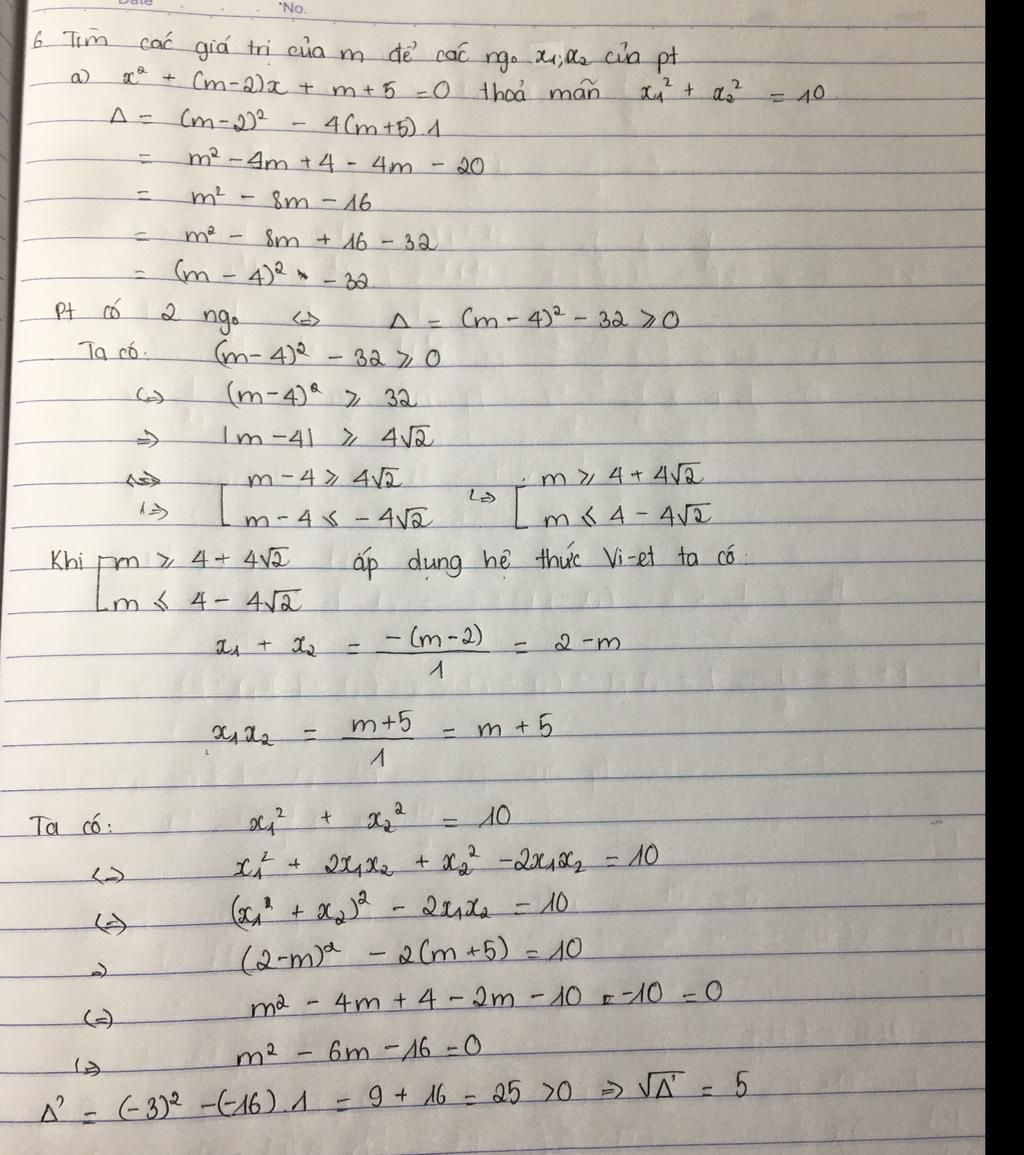 Date No.
6 Tìm các giá trị của m để các ngo x₁,x₂ của pt
a) x² + (m-2)x + m + 5 = 0 thoả mãn x₁² + x₂² = 10
Δ = (m-2)² - 4(m+5).1
= m² - 4m + 4 - 4m - 20
= m² - 8m - 16
= m² - 8m + 16 - 32
= (m - 4)² - 32
Pt có 2 ngo <=> Δ = (m - 4)² - 32 ⩾ 0
Ta có: (m - 4)² - 32 ⩾ 0
<=> (m-4)² ⩾ 32
=> |m - 4| ⩾ 4√2
<=> [ m - 4 ⩾ 4√2 <=> [ m ⩾ 4 + 4√2
m - 4 ⩽ - 4√2 m ⩽ 4 - 4√2
Khi [ m ⩾ 4 + 4√2 áp dụng hệ thức Vi-et ta có:
m ⩽ 4 - 4√2
x₁ + x₂ = -(m-2)/1 = 2 - m
x₁x₂ = m+5/1 = m + 5
Ta có: x₁² + x₂² = 10
<=> x₁² + 2x₁x₂ + x₂² - 2x₁x₂ = 10
<=> (x₁ + x₂)² - 2x₁x₂ = 10
=> (2-m)² - 2(m+5) = 10
<=> m² - 4m + 4 - 2m - 10 - 10 = 0
<=> m² - 6m - 16 = 0
Δ' = (-3)² - (-16).1 = 9 + 16 = 25 > 0 => √Δ' = 5